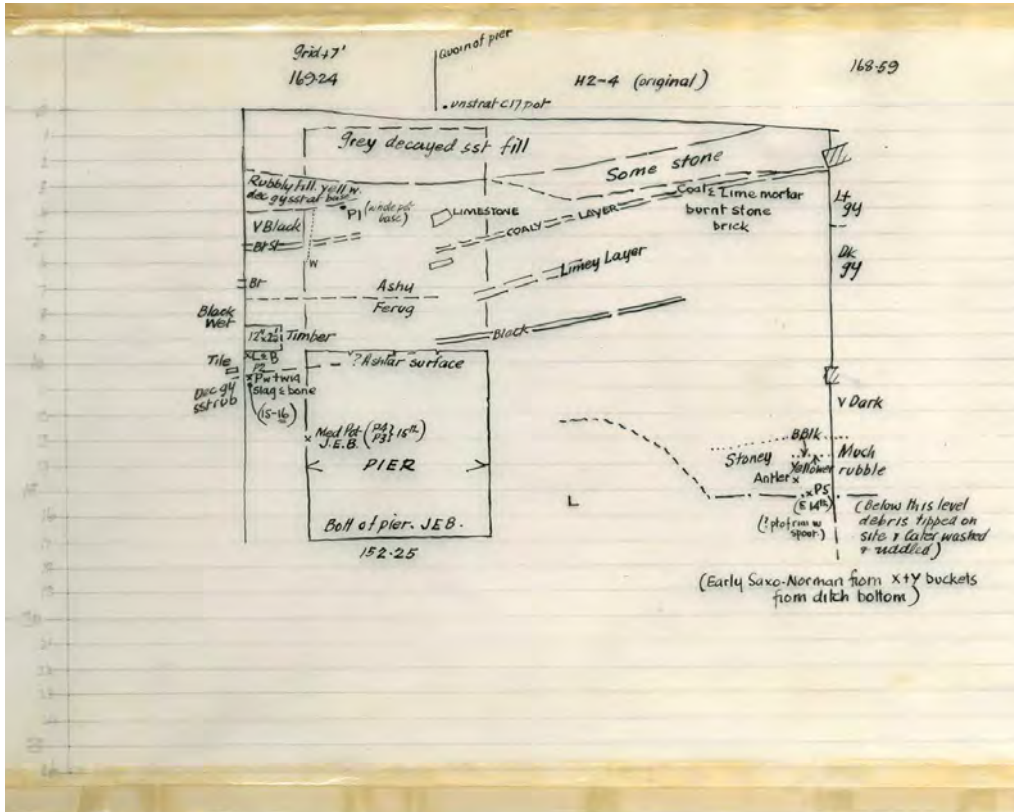 grid+7'
169·24
Quoin of pier
H2-4 (original)
168·59
unstrat C17 pot
grey decayed sst fill
Some stone
Rubbly fill. yell w.
dec gy sst at base
P1 (whole pot
base)
LIMESTONE
COALY LAYER
Coal & Lime mortar
burnt stone
brick
Lt
gy
V Black
Br St
W
Dk
gy
Limey Layer
Br
Ashy
Ferug
Black
Wet
Black
12"x2" Timber
L & B
Tile
P2
? Ashlar surface
Pw + twig
Dec gy
sst rub
Slag & bone
(15-16)
V Dark
Med Pot (P4 P3} 15th)
J.E.B.
PIER
BBlk
Stoney
Yellower
Much
rubble
Antler
P5
(E 14th)
L
(? pt of rim w
spout)
(Below this level
debris tipped on
site & later washed
& riddled)
Bott of pier. JEB.
152·25
(Early Saxo-Norman from x+y buckets
from ditch bottom)